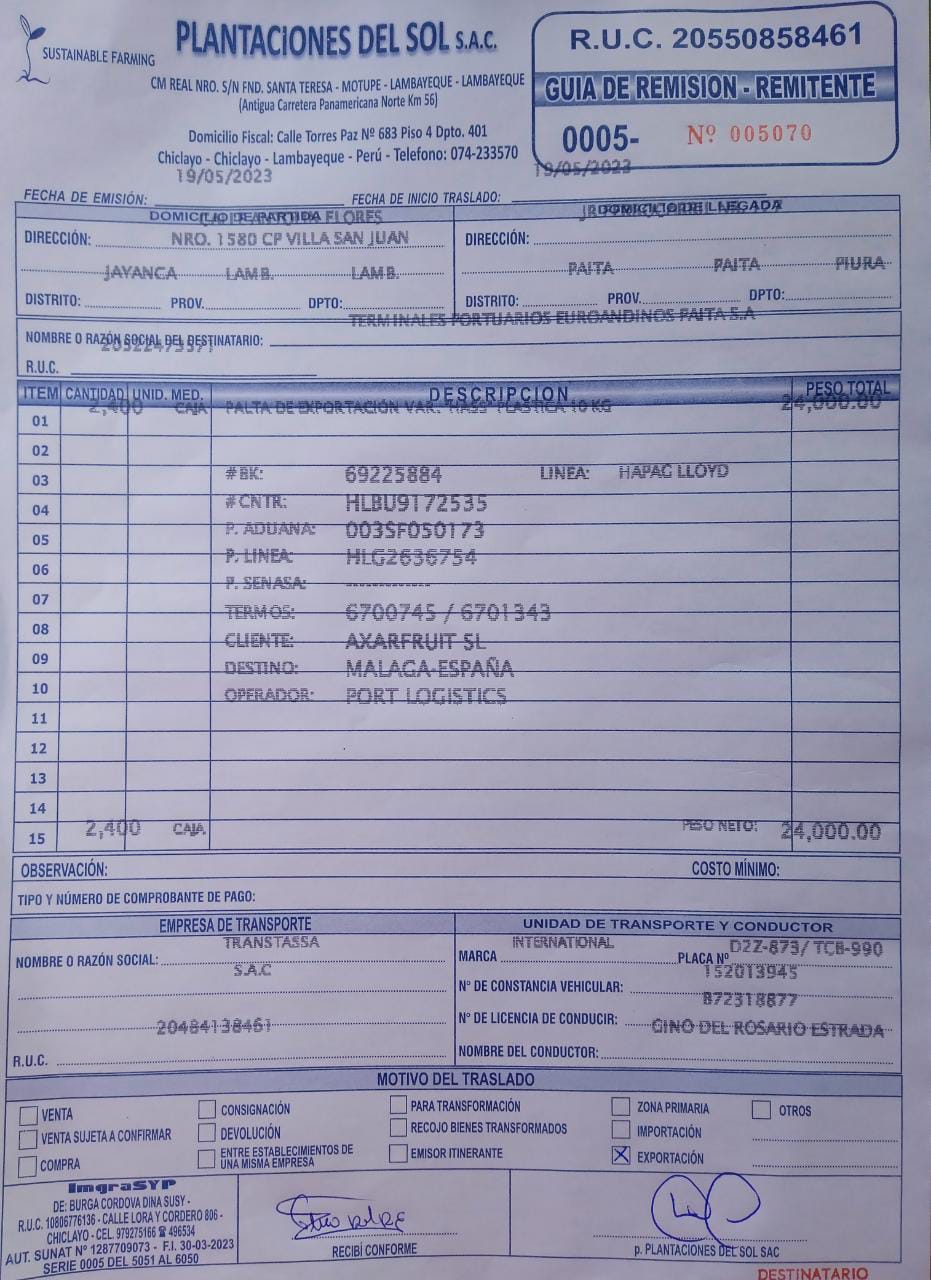 SUSTAINABLE FARMING
PLANTACIONES DEL SOL S.A.C.
CM REAL NRO. S/N FND. SANTA TERESA - MOTUPE - LAMBAYEQUE - LAMBAYEQUE
(Antigua Carretera Panamericana Norte Km 56)
Domicilio Fiscal: Calle Torres Paz Nº 683 Piso 4 Dpto. 401
Chiclayo - Chiclayo - Lambayeque - Perú - Telefono: 074-233570
R.U.C. 20550858461
GUIA DE REMISION - REMITENTE
0005- Nº 005070
19/05/2023 19/05/2023
FECHA DE EMISIÓN: FECHA DE INICIO TRASLADO:
DOMICILIO DE PARTIDA FLORES
DIRECCIÓN: NRO. 1580 CP VILLA SAN JUAN
JAYANCA LAMB. LAMB.
DISTRITO: PROV. DPTO:
DOMICILIO DE LLEGADA
DIRECCIÓN:
PAITA PAITA PIURA
DISTRITO: PROV. DPTO:
TERMINALES PORTUARIOS EUROANDINOS PAITA S.A
NOMBRE O RAZÓN SOCIAL DEL DESTINATARIO:
R.U.C.
ITEM CANTIDAD UNID. MED. DESCRIPCION PESO TOTAL
2,400 CAJA PALTA DE EXPORTACIÓN VAR. "HASS" PLASTICA 10 KG 24,000.00
01
02
03 #BK: 69225884 LINEA: HAPAG LLOYD
04 #CNTR: HLBU9172535
05 P. ADUANA: 003SF050173
06 P. LINEA: HLG2636754
P. SENASA: ------------
07
TERMOS: 6700745 / 6701343
08 CLIENTE: AXARFRUIT SL
09 DESTINO: MALAGA-ESPAÑA
10 OPERADOR: PORT LOGISTICS
11
12
13
14
15 2,400 CAJA PESO NETO: 24,000.00
OBSERVACIÓN: COSTO MÍNIMO:
TIPO Y NÚMERO DE COMPROBANTE DE PAGO:
EMPRESA DE TRANSPORTE
TRANSTASSA
NOMBRE O RAZÓN SOCIAL:
S.A.C
20484138461
R.U.C.
UNIDAD DE TRANSPORTE Y CONDUCTOR
INTERNATIONAL D2Z-873/ TCB-990
MARCA PLACA Nº
152013945
Nº DE CONSTANCIA VEHICULAR:
B72318877
Nº DE LICENCIA DE CONDUCIR:
GINO DEL ROSARIO ESTRADA
NOMBRE DEL CONDUCTOR:
MOTIVO DEL TRASLADO
VENTA CONSIGNACIÓN PARA TRANSFORMACIÓN ZONA PRIMARIA OTROS
VENTA SUJETA A CONFIRMAR DEVOLUCIÓN RECOJO BIENES TRANSFORMADOS IMPORTACIÓN
COMPRA ENTRE ESTABLECIMIENTOS DE UNA MISMA EMPRESA EMISOR ITINERANTE X EXPORTACIÓN
ImgraSYP
DE: BURGA CORDOVA DINA SUSY -
R.U.C. 10806776136 - CALLE LORA Y CORDERO 806 -
CHICLAYO - CEL. 979275166 ☎ 496534
AUT. SUNAT Nº 1287709073 - F.I. 30-03-2023
SERIE 0005 DEL 5051 AL 6050
RECIBÍ CONFORME
p. PLANTACIONES DEL SOL SAC
DESTINATARIO